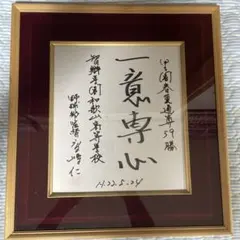 甲子園春夏通算59勝
一意専心
智辯学園和歌山高等学校
野球部監督 高嶋 仁
H.22.5.24